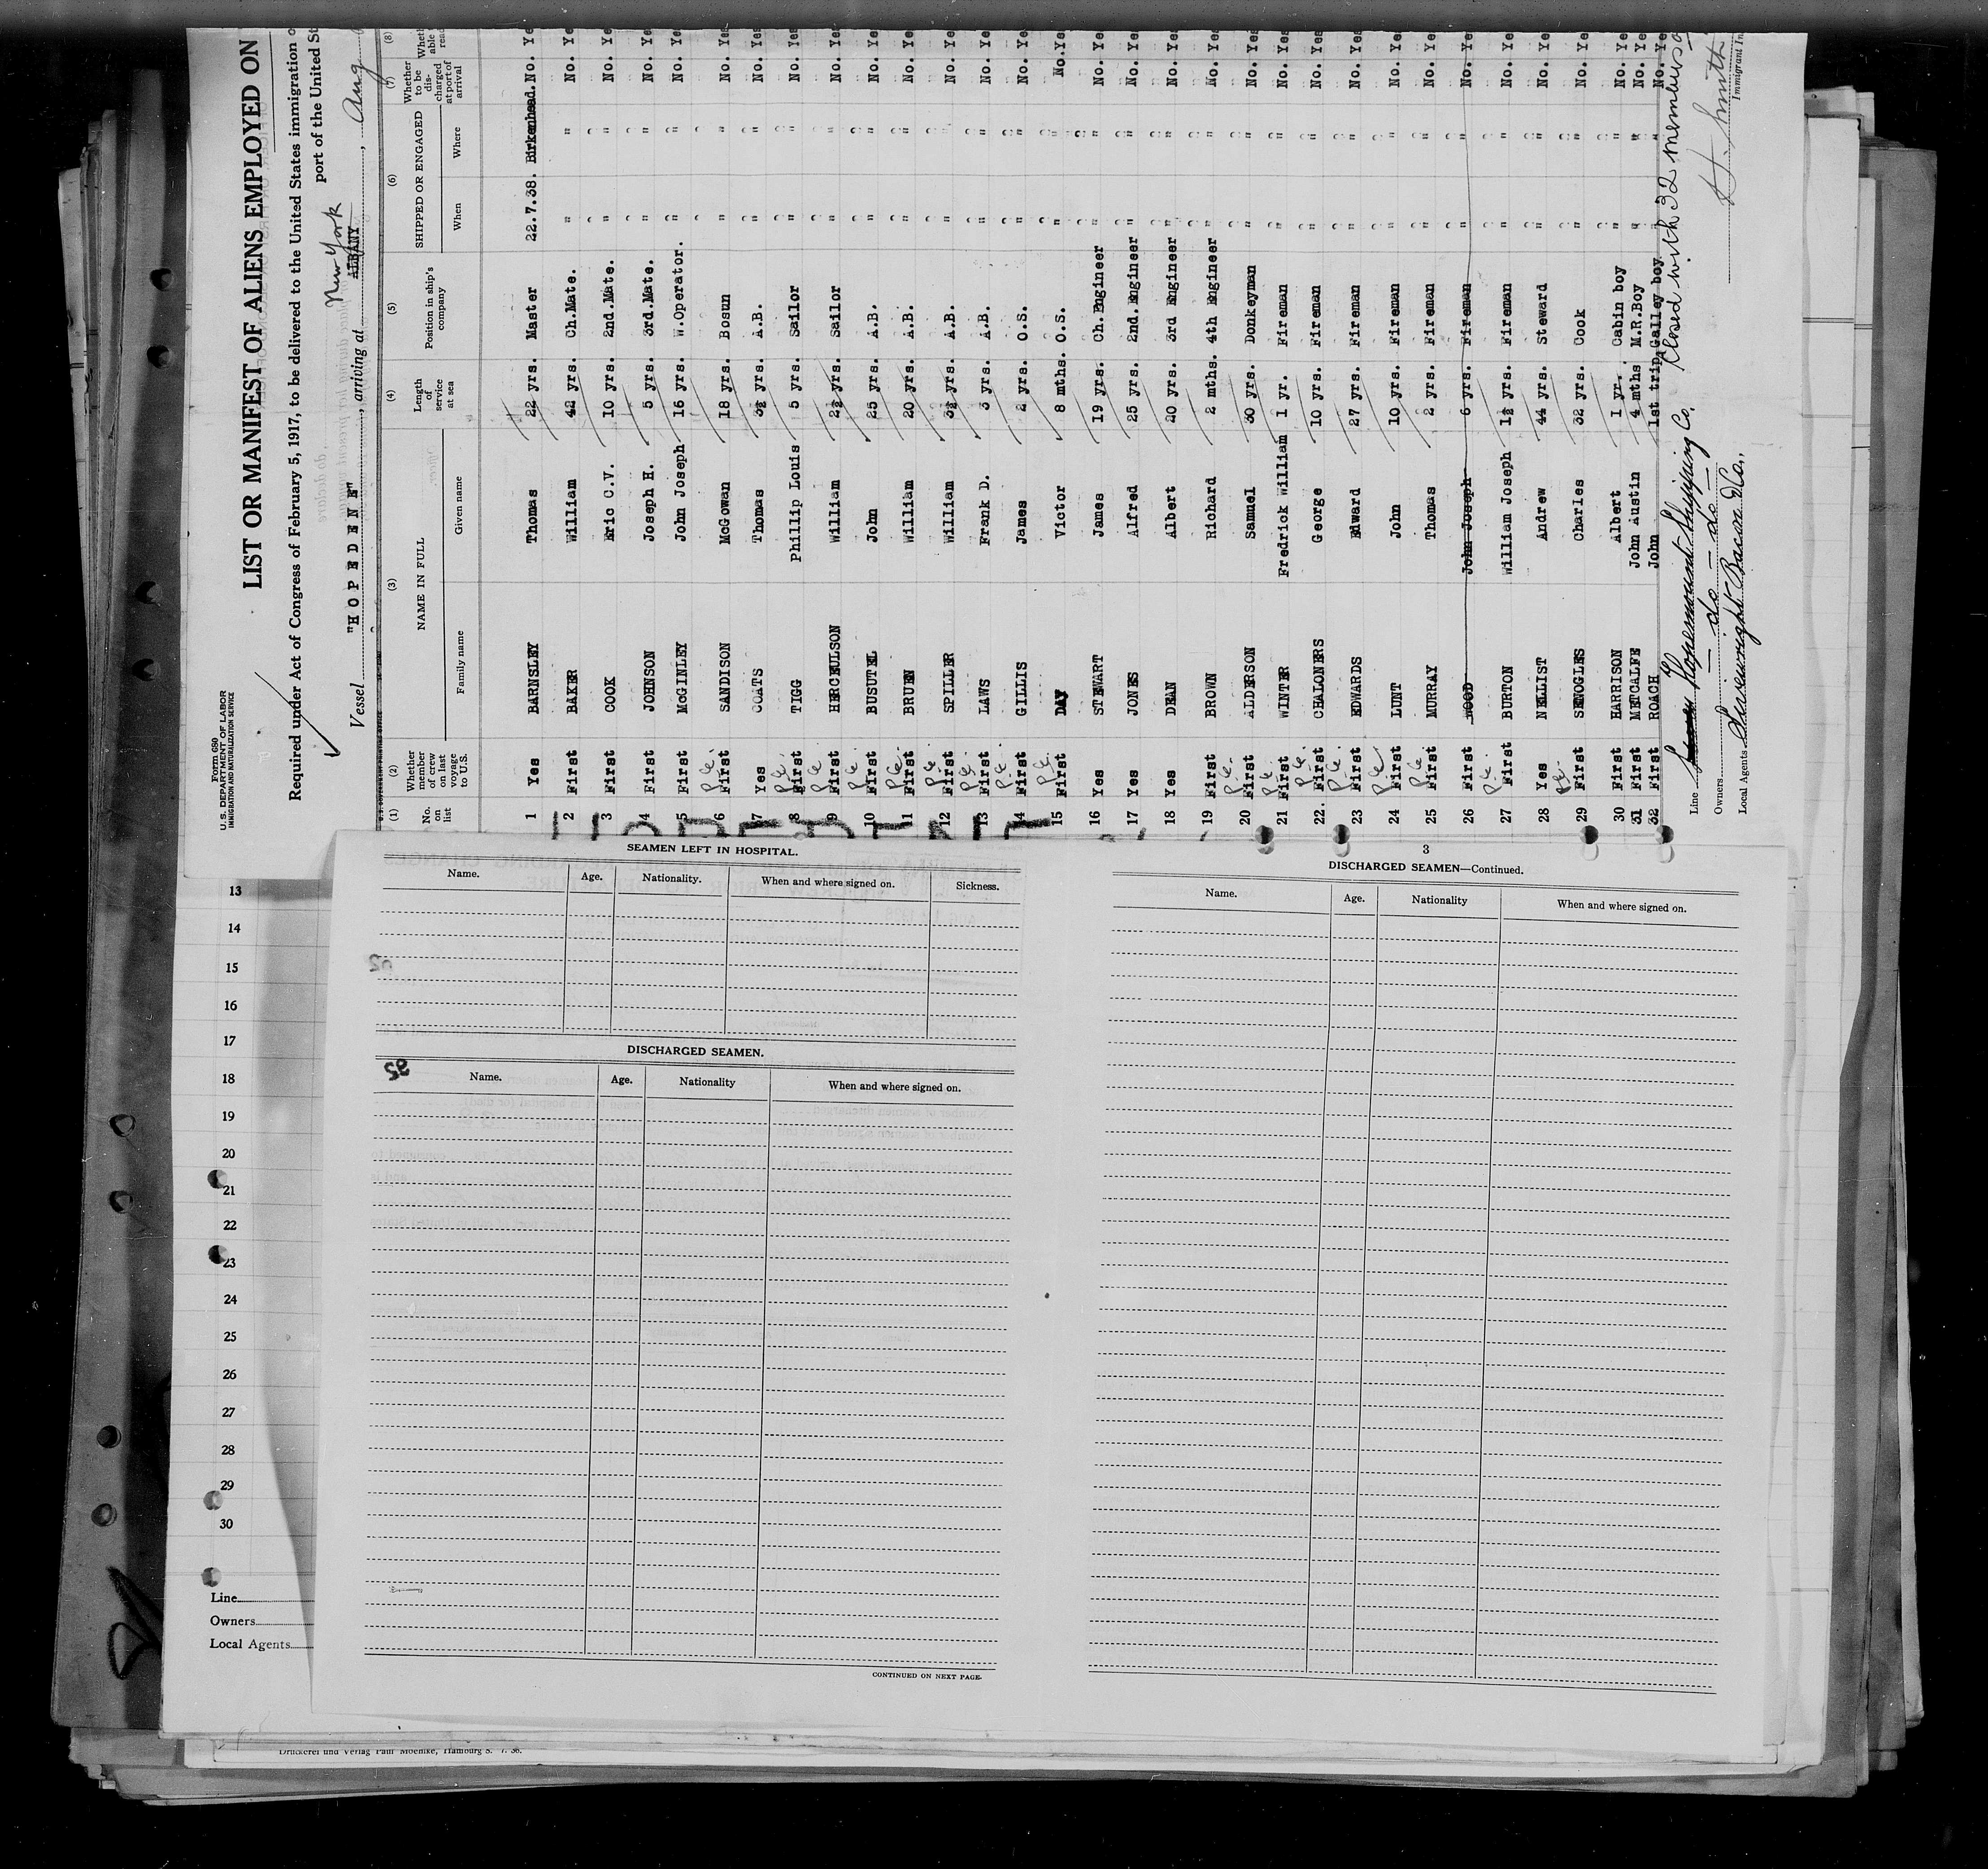 Form 680
U. S. DEPARTMENT OF LABOR
IMMIGRATION AND NATURALIZATION SERVICE
LIST OR MANIFEST OF ALIENS EMPLOYED ON
Required under Act of Congress of February 5, 1917, to be delivered to the United States immigration
port of the United St
New York
Vessel "HOPEDENE", arriving at ALBANY, Aug
(1) (2) (3) (4) (5) (6) (7) (8)
No. on list Whether member of crew on last voyage to U.S. NAME IN FULL Family name Given name Length of service at sea Position in ship's company SHIPPED OR ENGAGED When Where Whether to be discharged at port of arrival Wheth able read
1 Yes BARNSLEY Thomas 22 yrs. Master 22.7.38. Birkenhead. No. Yes
2 First BAKER William 42 yrs. Ch.Mate. " " No. Ye
3 First COOK Eric C.V. 10 yrs. 2nd.Mate. " " No. Ye
4 First JOHNSON Joseph H. 5 yrs. 3rd.Mate. " " No. Yes
5 First McGINLEY John Joseph 16 yrs. W.Operator. " " No. Yes
6 First SANDISON McGowan 18 yrs. Bosun " " No. Yes
7 Yes COATS Thomas 3½ yrs. A.B. " " No. Yes
8 First TIGG Phillip Louis 5 yrs. Sailor " " No. Yes
9 First HERCEULSON William 2½ yrs. Sailor " " No. Yes
10 First BUSUTEL John 25 yrs. A.B. " " No. Yes
11 First BRUEN William 20 yrs. A.B. " " No. Yes
12 First SPILLER William 3½ yrs. A.B. " " No. Yes
13 First LAWS Frank D. 3 yrs. A.B. " " No. Yes
14 First GILLIS James 2 yrs. O.S. " " No. Yes
15 First DAY Victor 8 mths. O.S. " " No. Yes
16 Yes STEWART James 19 yrs. Ch.Engineer " " No. Yes
17 Yes JONES Alfred 25 yrs. 2nd. Engineer " " No. Ye
18 Yes DEAN Albert 20 yrs. 3rd Engineer " " No. Ye
19 First BROWN Richard 2 mths. 4th Engineer " " No. Yes
20 First ALDERSON Samuel 30 yrs. Donkeyman " " No. Yes
21 First WINTER Fredrick William 1 yr. Fireman " " No. Yes
22. First CHALONERS George 10 yrs. Fireman " " No. Yes
23 First EDWARDS Edward 27 yrs. Fireman " " No. Yes
24 First LUNT John 10 yrs. Fireman " " No. Ye
25 First MURRAY Thomas 2 yrs. Fireman " " No. Ye
26 First WOOD John Joseph 6 yrs. Fireman " " No. Yes
27 First BURTON William Joseph 1½ yrs. Fireman " " No. Yes
28 Yes NELLIST Andrew 44 yrs. Steward " " No. Yes
29 First SENOGLES Charles 32 yrs. Cook " " No. Yes
30 First HARRISON Albert 1 yr. Cabin boy " " No. Ye
31 First METCALFE John Austin 4 mths M.R.Boy " " No. Ye
32 First ROACH John 1st trip. Galley boy " " No. Ye
Closed with 32 members
Line Hopemount Shipping Co.
Owners — do — do —
Local Agents Bacon & Co.,
H. Smith
Immigrant In
SEAMEN LEFT IN HOSPITAL.
Name. Age. Nationality. When and where signed on. Sickness.
DISCHARGED SEAMEN.
Name. Age. Nationality When and where signed on.
CONTINUED ON NEXT PAGE.
3
DISCHARGED SEAMEN—Continued.
Name. Age. Nationality When and where signed on.
13
14
15
16
17
18
19
20
21
22
23
24
25
26
27
28
29
30
Line
Owners
Local Agents
Druckerei und Verlag Paul Moehlke, Hamburg 8. 7. 36.